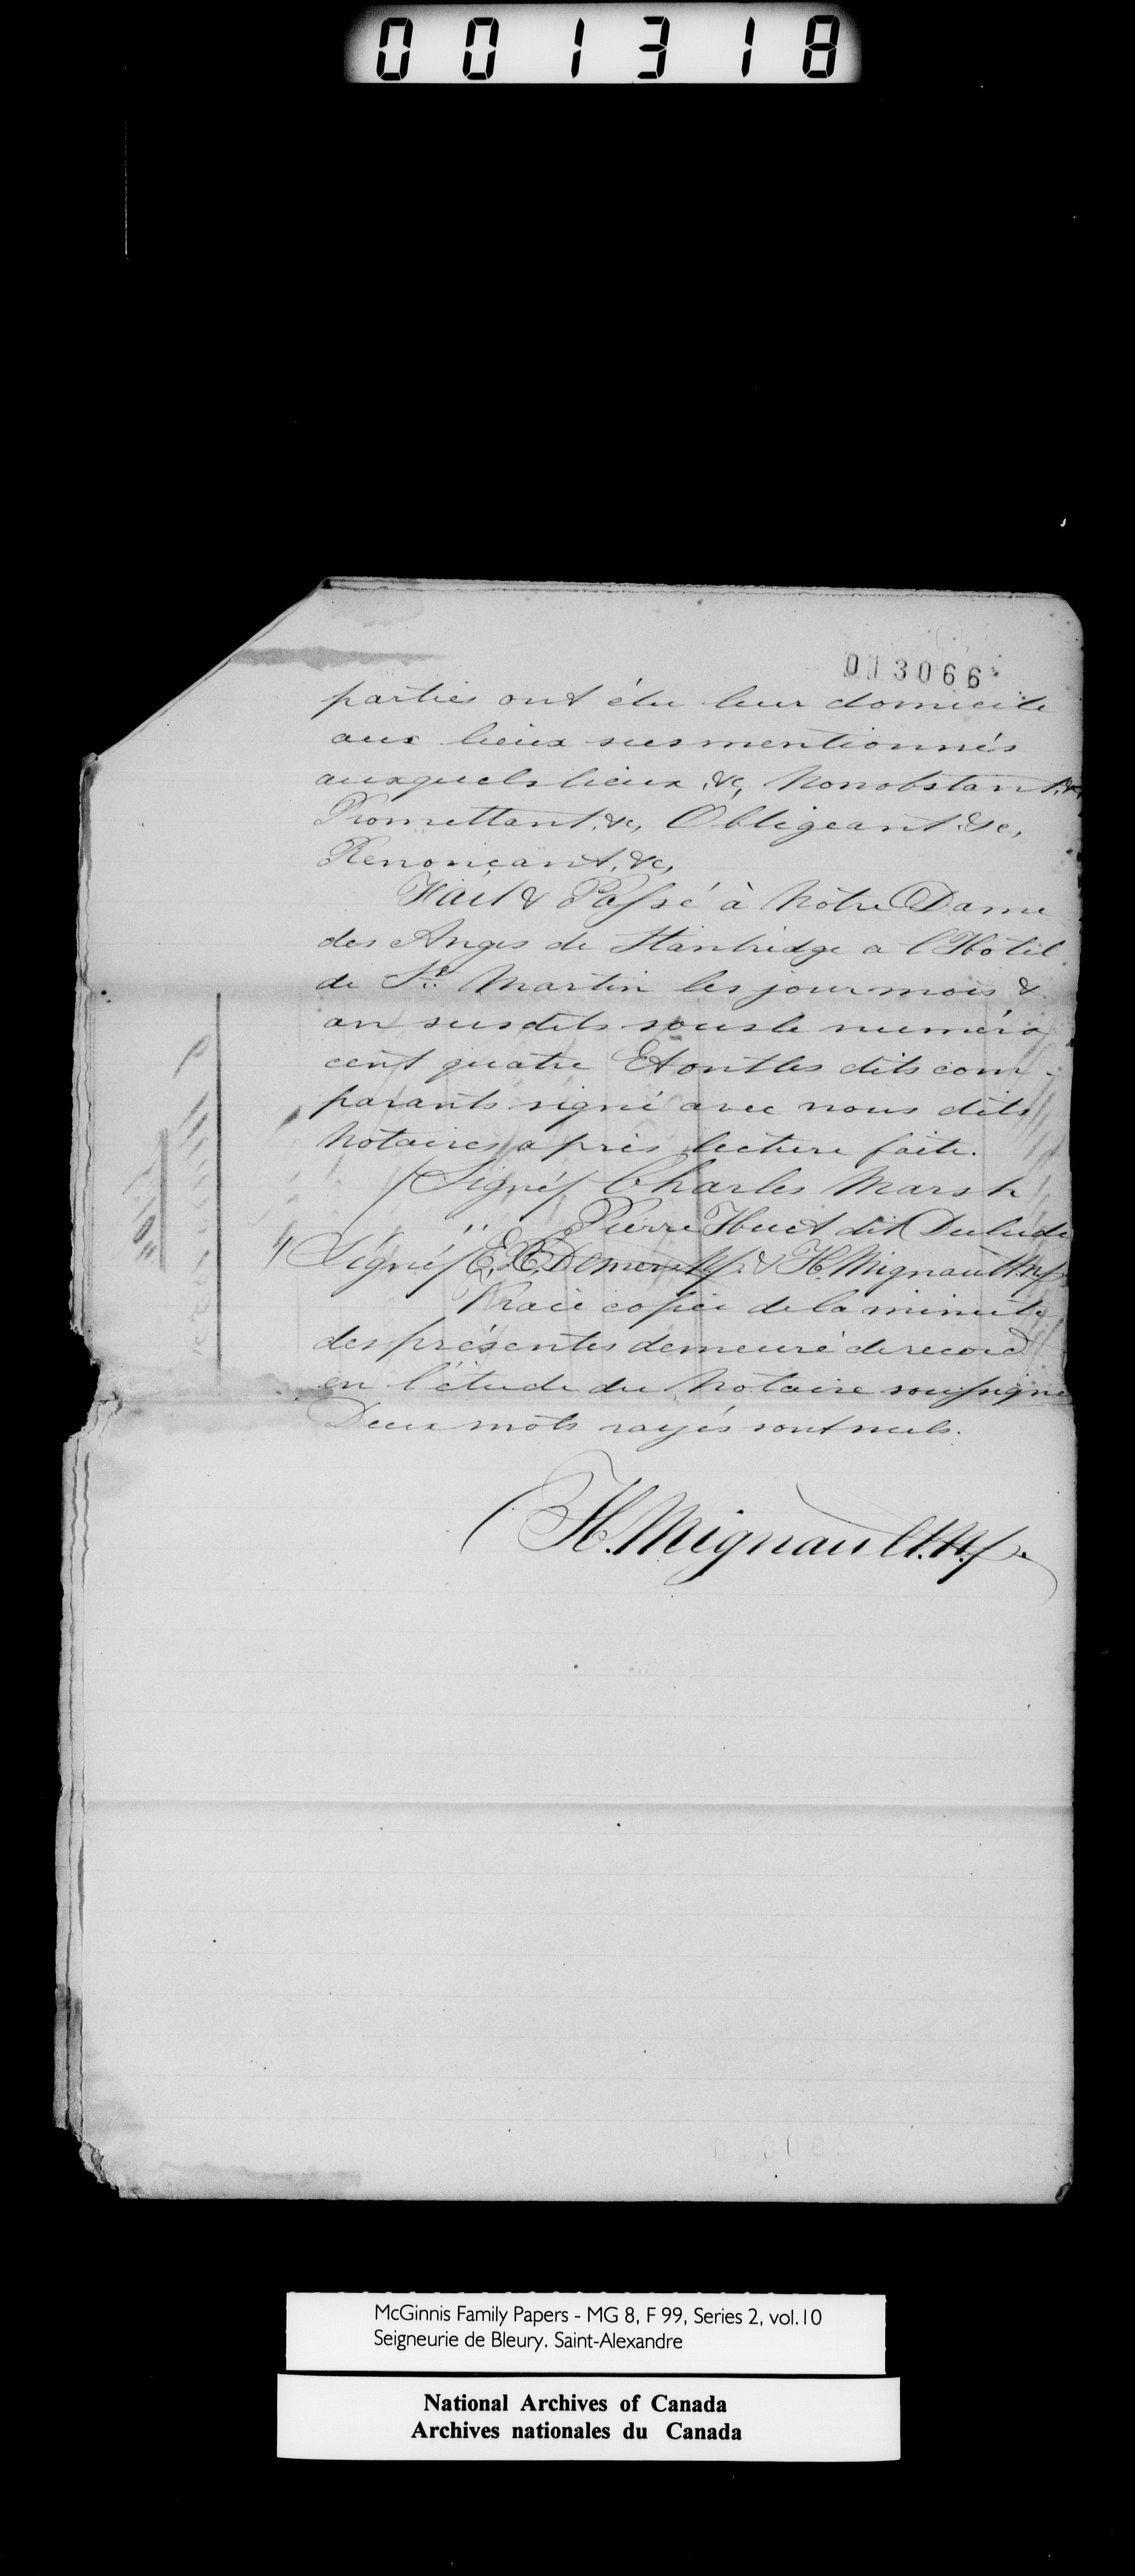 001318
013066
parties ont élu leur domicile
aux lieux susmentionnés
auxquels lieux, &c, Nonobstant, &c,
Promettant, &c, Obligeant &c,
Renonçant, &c,
Fait & Passé à Nôtre Dame
des Anges de Stanbridge a l'Hôtel
de St. Martin les jour mois &
an susdits sous le numéro
cent quatre Et ont les dits com-
parants signé avec nous dits
Notaires, après lecture faite.
(Signé) Charles Marsh
" Pierre Huet dit Dulude
(Signé) E. R. Demers N.P. & H. Mignault N.P.
Vraie copie de la minute
des présentes demeuré de record
en l'étude du Notaire soussigné
Deux mots rayés sont nuls.
H. Mignault. N.P.
McGinnis Family Papers - MG 8, F 99, Series 2, vol.10
Seigneurie de Bleury. Saint-Alexandre
National Archives of Canada
Archives nationales du Canada